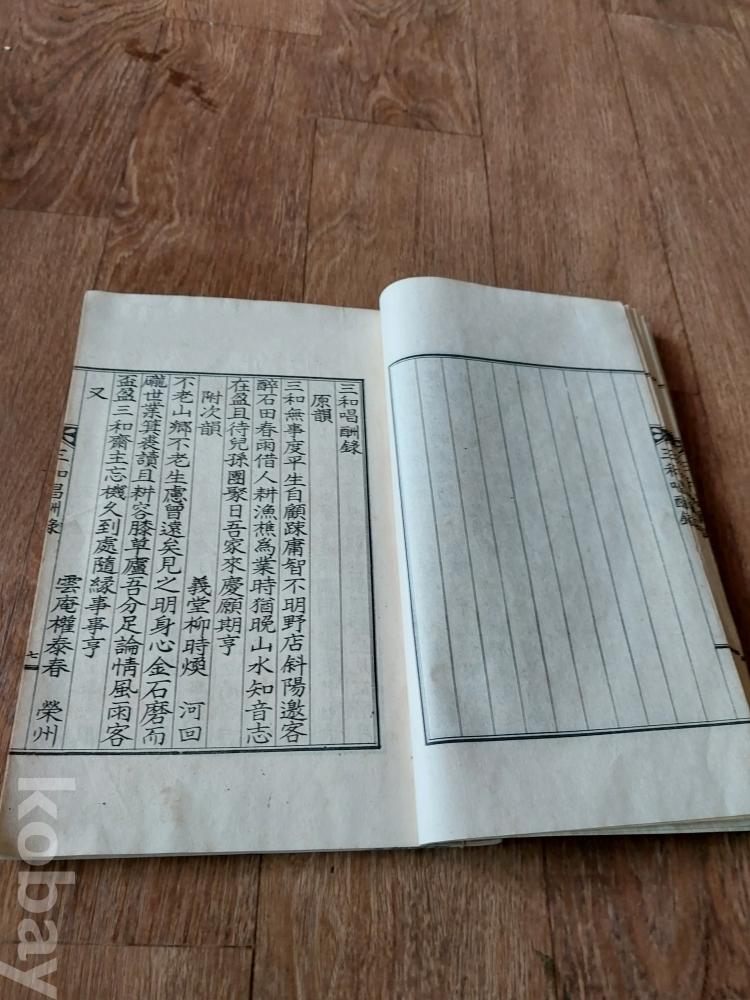 三和唱酬錄
三和唱酬錄
原韻
三和無事度平生自顧踈庸智不明野店斜陽邀客
醉石田春雨借人耕漁樵為業時猶晚山水知音志
在盈且待兒孫團聚日吾家來慶願期亨
附次韻 義堂柳時煥 河回
不老山鄉不老生慮曾遠矣見之明身心金石磨而
礲世業箕裘讀且耕容膝草廬吾分足論情風雨客
盃盈三和齋主忘機久到處隨緣事事亨
又 雲庵權泰春 榮州
三和唱酬錄 七
kobay